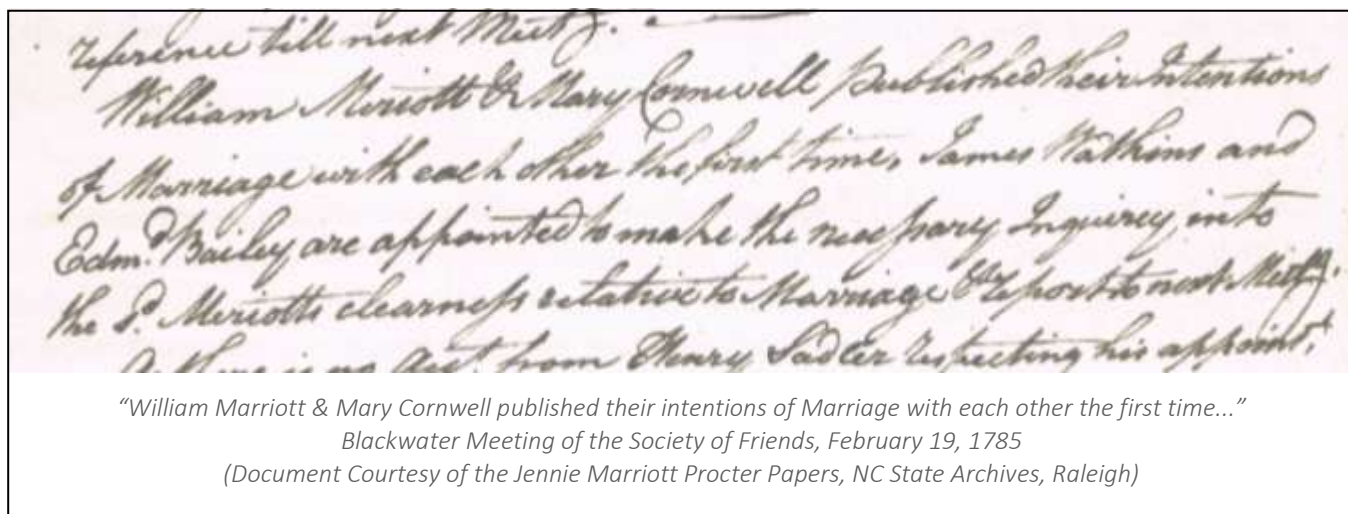 reference till next Meetg.
William Meriott & Mary Cornwell published their Intentions
of Marriage with each other the first time, James Watkins and
Edmd. Bailey are appointed to make the necessary Inquirey into
the sd. Meriotts clearness relative to Marriage & report to next Meetg.
As there is no Acct. from Henry Sadler respecting his appointt.
“William Marriott & Mary Cornwell published their intentions of Marriage with each other the first time...”
Blackwater Meeting of the Society of Friends, February 19, 1785
(Document Courtesy of the Jennie Marriott Procter Papers, NC State Archives, Raleigh)